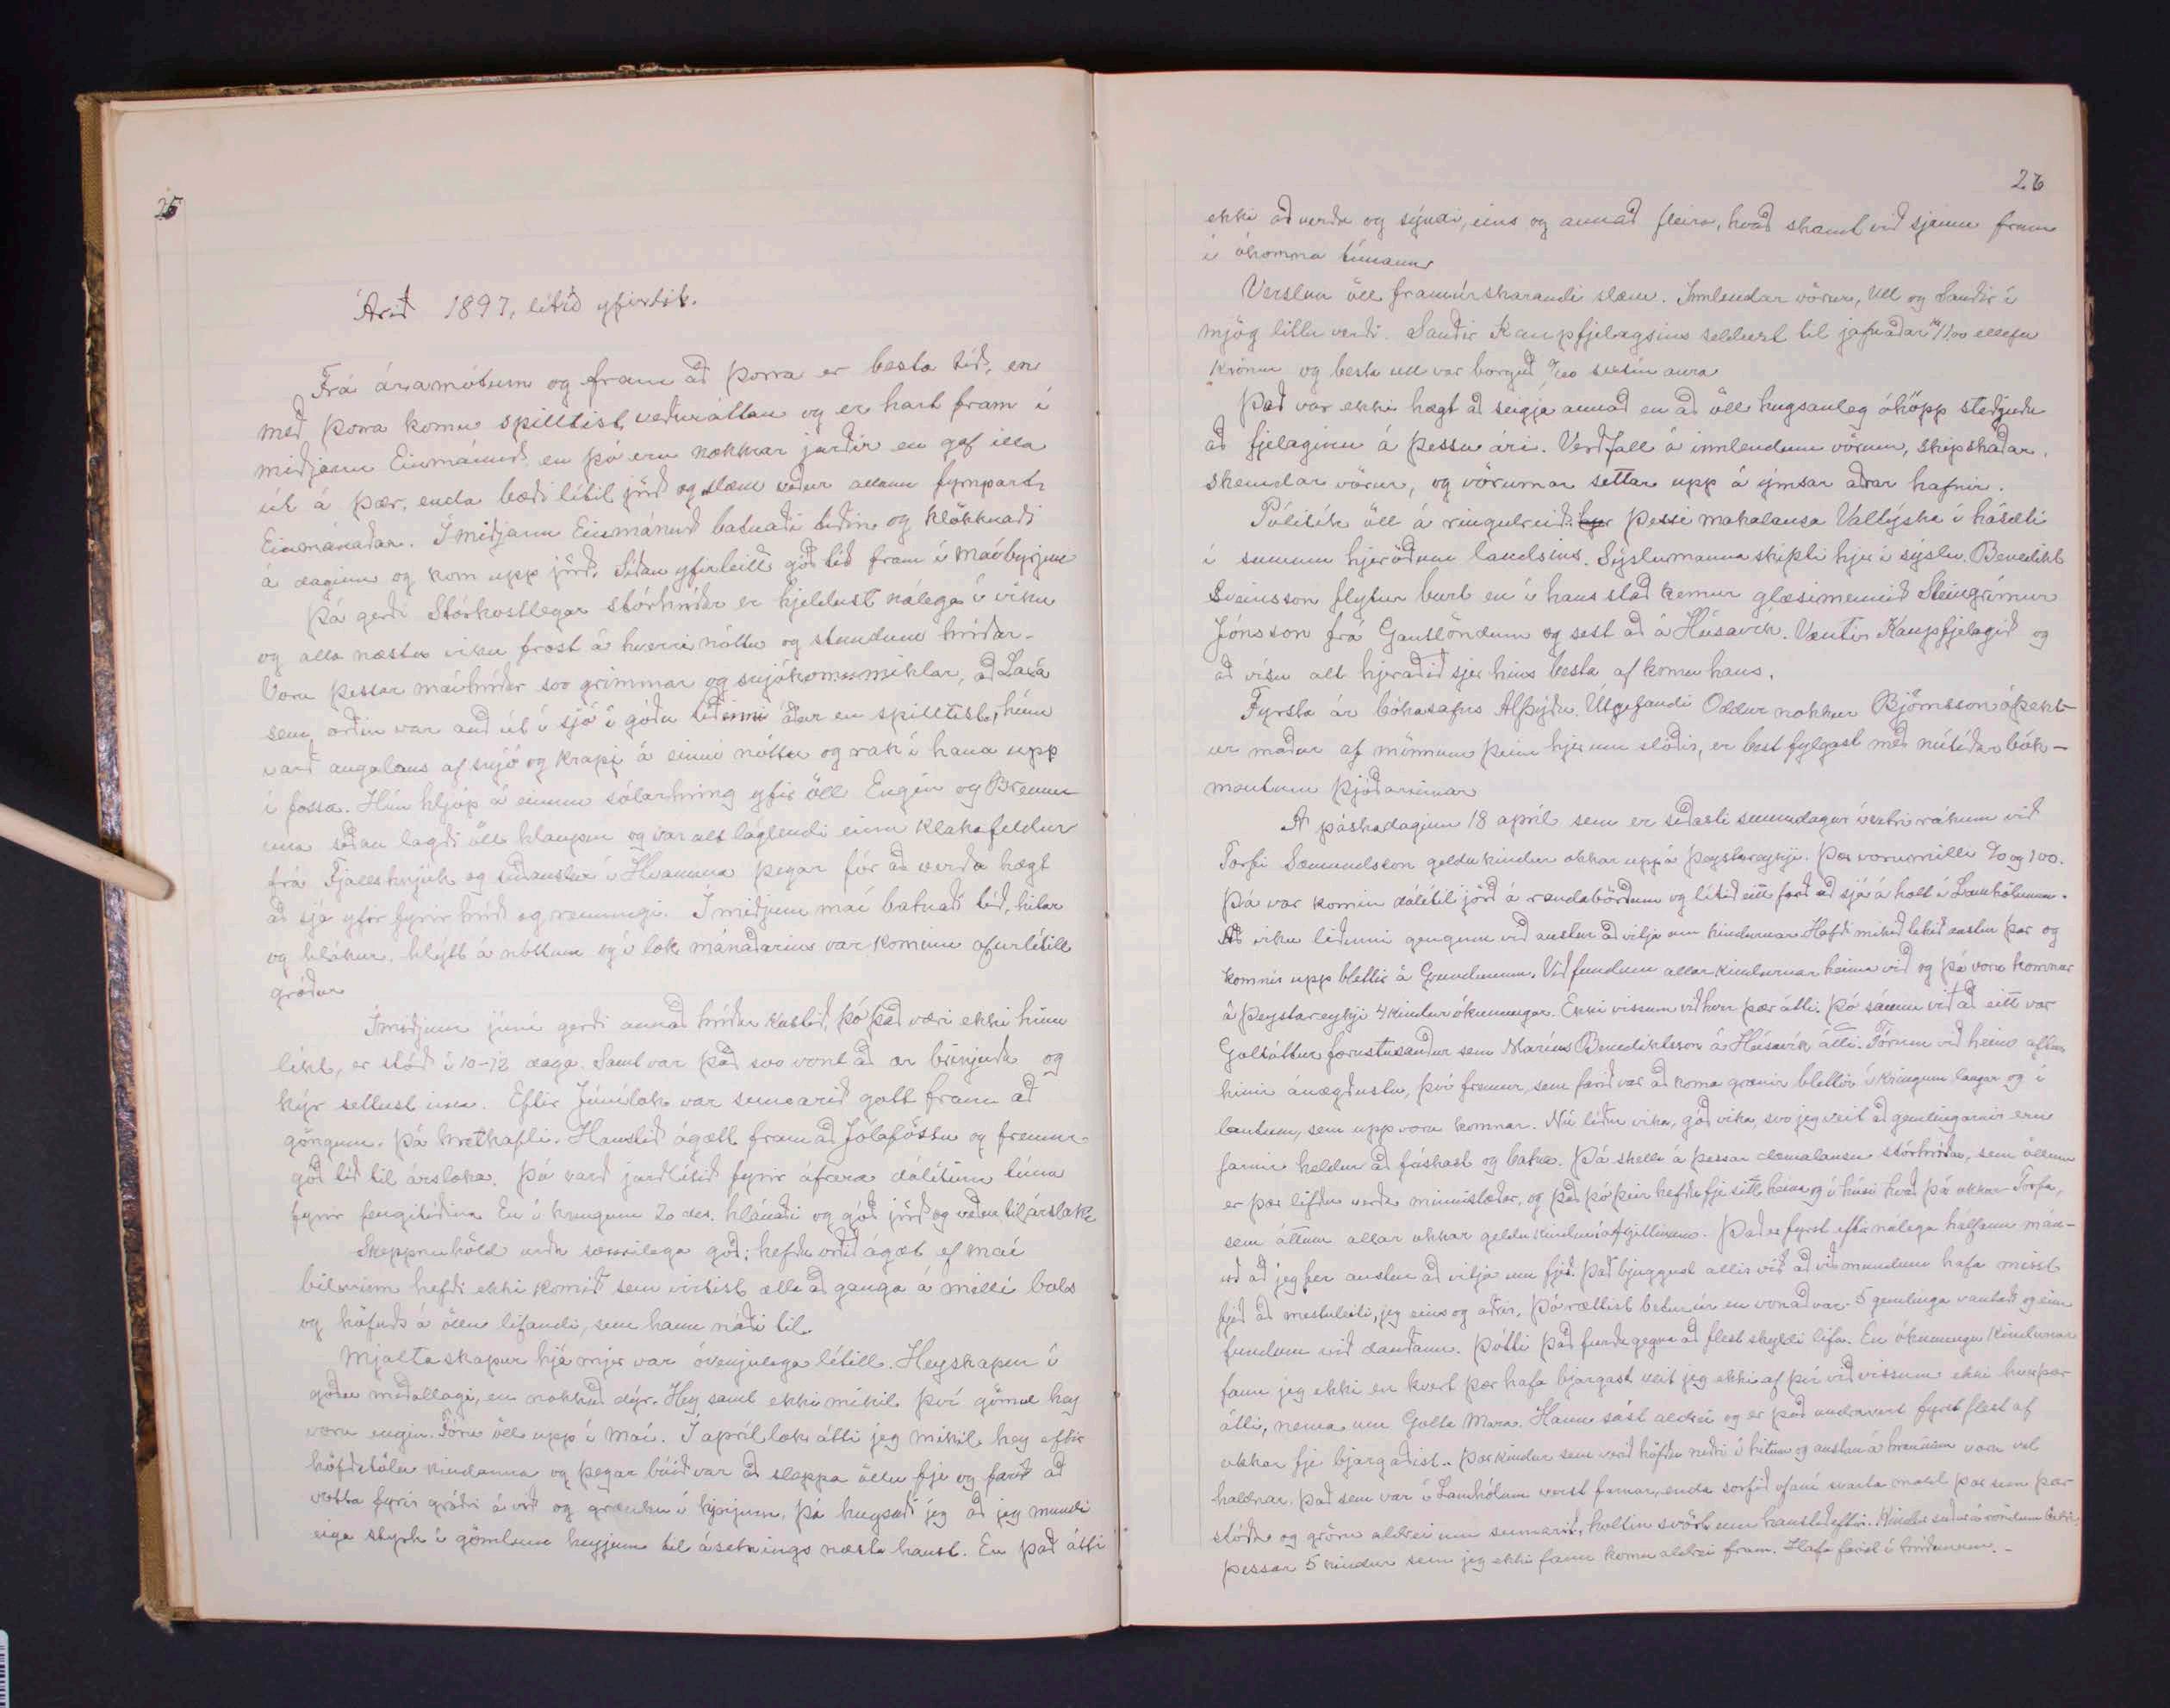 25
Árið 1897, lítið yfirlit.
Frá áramótum og fram að þorra er besta tíð, en
með þorra komu spilltist veðuráttan og er hart fram í
miðjann Einmánuð, en þó eru nokkrar jarðir en gaf illa
út á þær, enda bæði lítil jörð og slæm veður allann fyrripart
Einmánaðar. Í miðjann Einmánuð batnaði tíðin og klökknaði
á daginn og kom upp jörð. Síðan yfirleitt góð tíð fram í maíbyrjun
Þá gerði Stórkostlegar stórhríðar er hjeldust nálega í viku
og alla næstu viku frost á hverri nóttu og stundum hríðar.
Voru þessar maíhríðar svo grimmar og snjókomumiklar, að Laxá
sem orðin var auð út í sjó í góðu tíðinni áðar en spilltist, hún
varð augalaus af snjó og krapi á einni nóttu og rak í hana upp
í fossa. Hún hljóp á einum sólarhring yfir öll Engin og Brenn
una síðan lagði öll hlaupin og var alt láglendi einn klakafeldur
frá Fjallshnjúk og suðaustur í Hvamma þegar fór að verða hægt
að sjá yfir fyrir hríð og renningi. Í miðjum maí batnaði tíð, hitar
og hlákur, hlýtt á nóttum og í lok mánaðarins var kominn afurlítill
gróður
Í miðjum júní gerði annað hríðar kastið, þó það væri ekki hinu
líkt, er stóð í 10-12 daga. Samt var það svo vont að ær brinjuðu og
kýr settust inn. Eftir Júnílok var sumarið gott fram að
göngum. Þá hretkafli. Haustið ágætt fram að Jólaföstu og fremur
góð tíð til ársloka. Þó varð jarðlítið fyrir áfrera dálítinn tíma
fyrir fengitíðina En í kringum 20 des. hlánaði og góð jörð og veður til ársloka
Skeppnuhöld urðu sæmilega góð; hefðu orðið ágæt ef maí
bilurinn hefði ekki komið sem virtist ætla að ganga á milli bols
og höfuðs á öllu lifandi, sem hann náði til.
Mjaltaskapur hjá mjer var óvenjulega lítill. Heyskapur í
góðu meðallagi, en nokkuð dýr. Hey samt ekki mikil því gömul hey
voru engin. Fóru öll upp í maí. Í apríllok átti jeg mikil hey eftir
höfðatölu kindanna og þegar búið var að sleppa öllu fje og farið að
votta fyrir gróðri á við og grænku í kýrjum, þá hugsaði jeg að jeg mundi
eiga styrk í gömlum heyjum til ásetnings næsta haust. En það átti
26
ekki að verða og sýndi, eins og annað fleira, hvað skamt við sjeum fram
í ókomna tímann
Verslun öll framúrskarandi slæm. Innlendar vörur, Ull og Sauðir í
mjög litlu verði. Sauðir Kaupfjelagsins seldust til jafnaðar kr 11,00 ellefu
krónur og besta ull var borguð sextíu aura
Það var ekki hægt að seigja annað en að öll hugsanleg óhöpp steðjuðu
að fjelaginu á þessu ári. Verðfall á innlendum vörum, skipskaðar,
skemdar vörur, og vörurnar settar upp á ýmsar aðrar hafnir.
Pólitík öll á ringulreið. þessi makalausa Valtýska í hásæti
í sumum hjeröðum landsins. Sýslumanna skipti hjer í sýslu. Benedikt
Sveinsson flytur burt en í hans stað kemur glæsimennið Steingrímur
Jónsson frá Gautlöndum og sest að á Húsavík. Væntir Kaupfjelagið og
að vísu alt hjeraðið sjer hins besta af komu hans.
Fyrsta ár bókasafns Alþýðu. Útgefandi Oddur nokkur Björnsson óþekt-
ur maður af mönnum þeim hjer um slóðir, er best fylgast með nútíðar bók-
mentum þjóðarinnar
Á páskadaginn 18 apríl sem er síðasti sunnudagur í vetri rákum við
Torfi Sæmundsson geldu kindur okkar upp á Þeystareyki. Þær voru milli 90 og 100.
Þá var komin dálítil jörð á randabörðum og lítið eitt farið að sjá á holt í Lambhólunum.
Að viku liðinni gengum við austur að vitja um kindurnar. Hafði mikið tekið austur þar og
komnir upp blettir á Grundunum. Við fundum allar kindurnar heima við og þá voru komnar
á Þeystareyki 4 kindur ókunnugar. Ekki vissum við hver þær átti. Þó sáum við að eitt var
Goltóttur forustusauður sem Maríus Benediktsson á Húsavík átti. Fórum við heim aftur
hinir ánægðustu, því fremur, sem farið var að koma grænir blettir í kringum laugar og í
lautum, sem upp voru komnar. Nú liður vika, góð vika, svo jeg veit að gemlingarnir eru
farnir heldur að frískast og batna. Þá skella á þessar dæmalausu stórhríðar, sem öllum
er þær lifðu verða minnistæðar, og það þó þeir hefðu fje sitt heima og í húsi hvað þá okkar Torfa,
sem áttum allar okkar geldu kindur á fjöllunum. Það er fyrst eftir nálega hálfann mán-
uð að jeg fer austur að vitja um fjeð. Það bjuggust allir við að við mundum hafa misst
fjeð að mestuleiti, jeg eins og aðrir. Þó rættist betur úr en vonað var. 5 gemlinga vantaði og einn
fundum við dauðann. Þótti það furðu gegna að flest skyldi lifa. En ókunnugu kindurnar
fann jeg ekki en hvert þær hafa bjargast veit jeg ekki af því við vissum ekki hver þær
átti, nema um Golta Mara. Hann sást aldrei og er það undravert fyrst flest af
okkar fje bjargaðist. Þær kindur sem verið höfðu niðri í hitum og austan á hrauninu voru vel
haldnar, það sem var í Lambhólum verst farnar, enda sorfið ofaní svarta mold þar sem þær
stóðu og gröru aldrei um sumarið, holtin svört um haustið eftir.
Þessar 5 kindur sem jeg ekki fann komu aldrei fram. Hafa farist í hríðunum. -